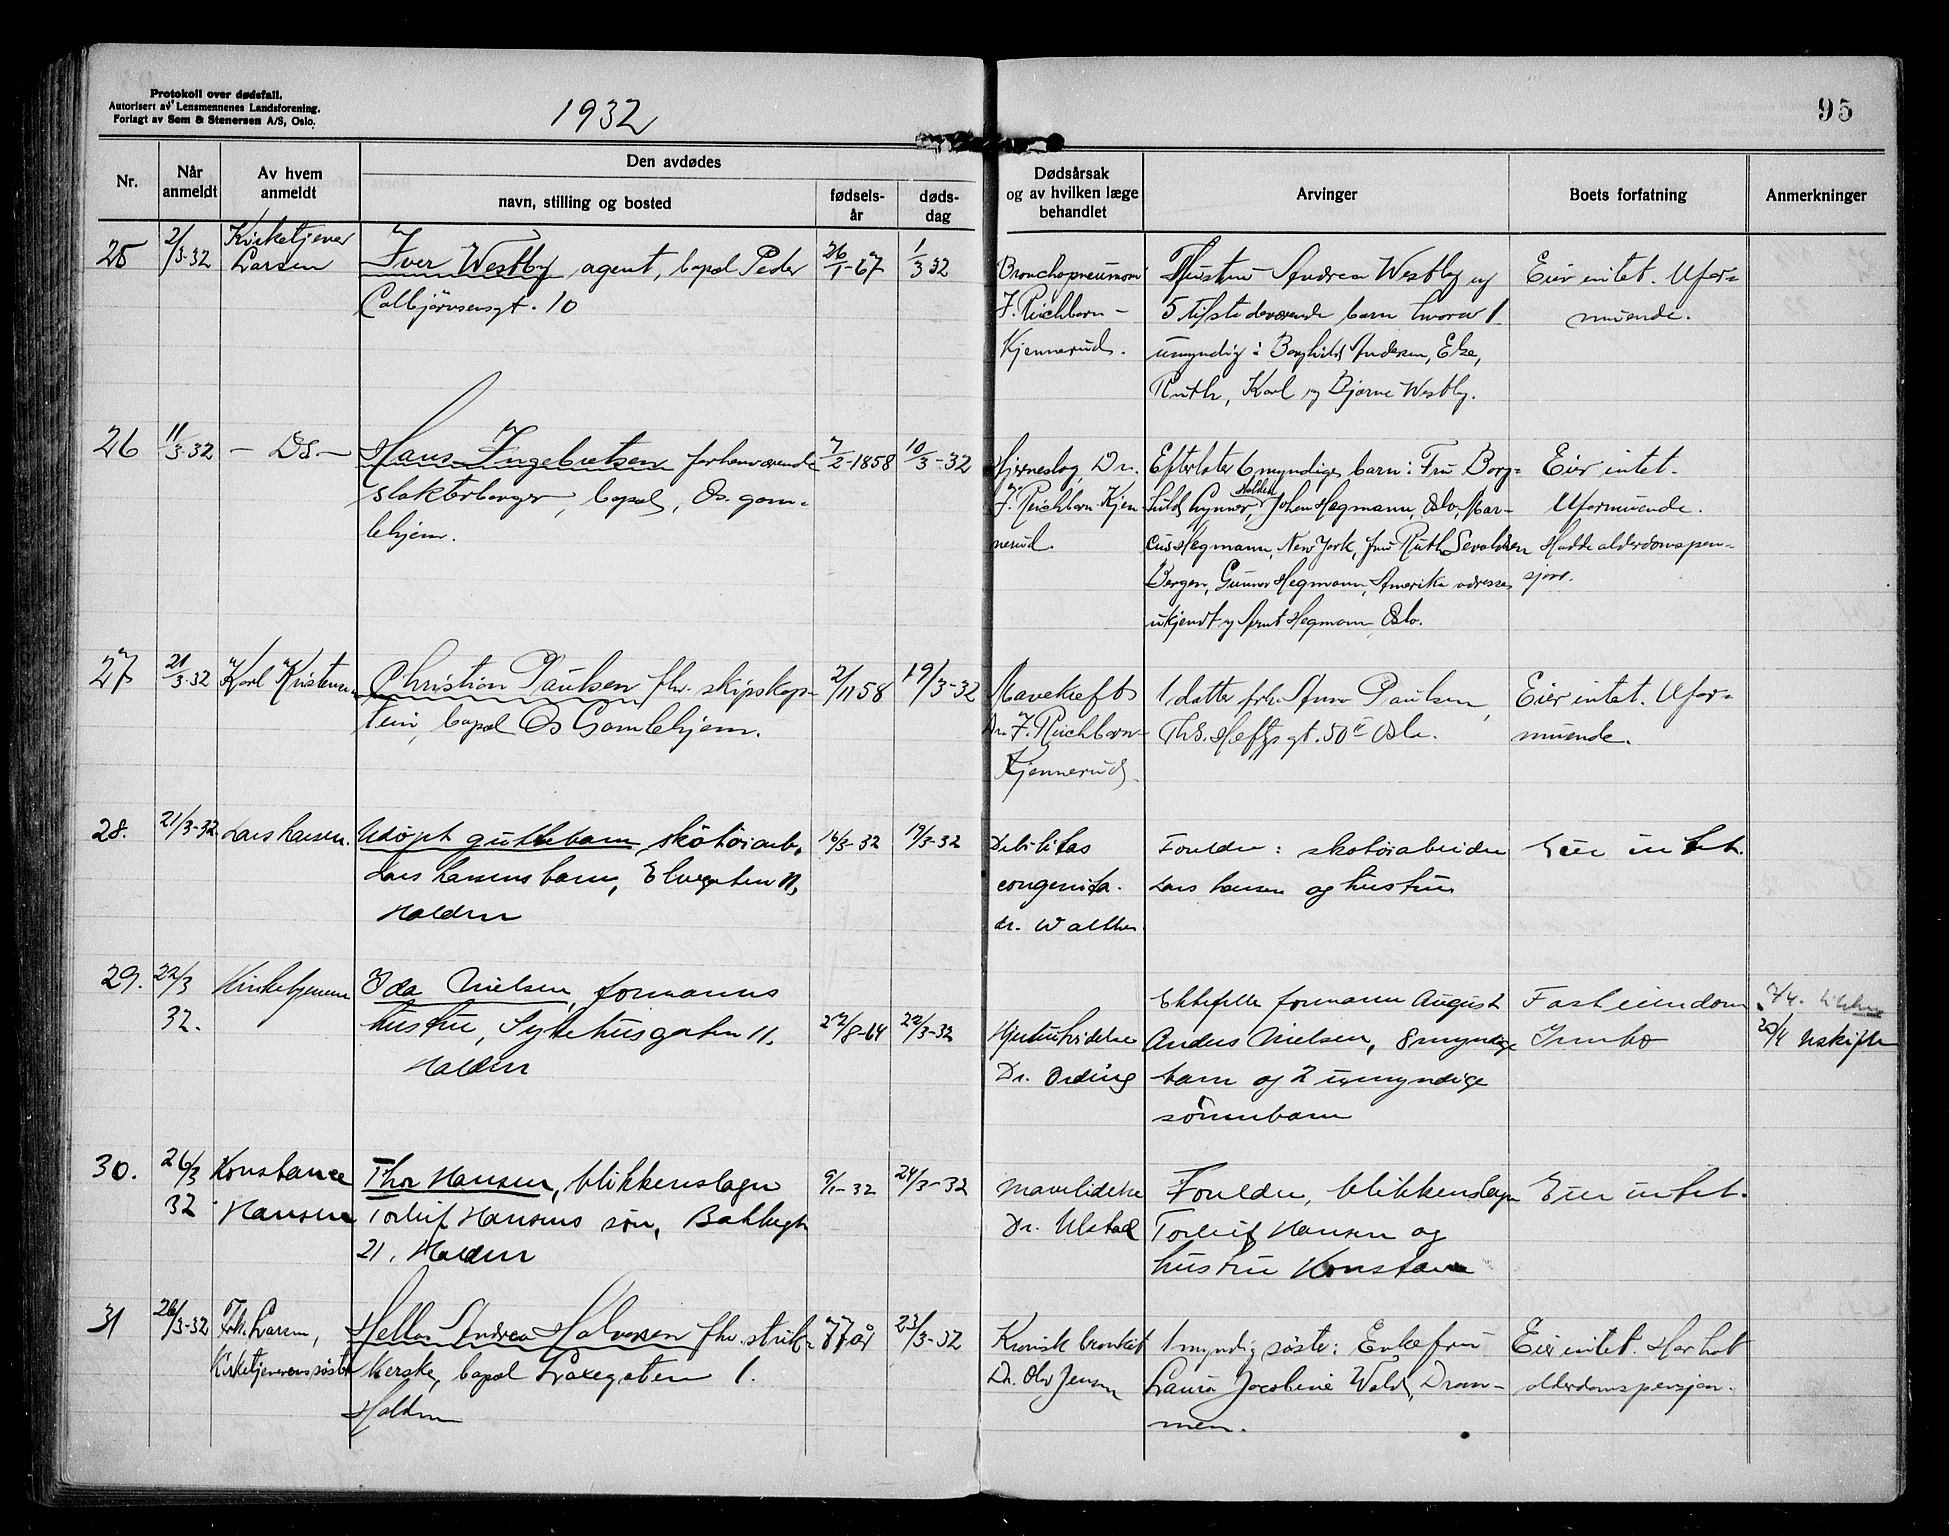 Protokoll over dødsfall.
Autorisert av Lensmennenes Landsforening.
Forlagt av Sem & Stenersen A/S, Oslo.
1932
95
Nr.
Når anmeldt
Av hvem anmeldt
Den avdødes
navn, stilling og bosted
fødsels-år
døds-dag
Dødsårsak og av hvilken læge behandlet
Arvinger
Boets forfatning
Anmerkninger
25
2/3-32
Kirketjener
Larsen
Iver Westby, agent, bopæl Peder
Colbjørnsensgt. 10
26/1-67
1/3 32
Bronchopneumoni
F. Reichborn-
Kjennerud.
Hustru Andrea Westby og
5 tilstedeværende barn hvorav 1
umyndig: Borghild Andersen, Else,
Ruth, Karl og Bjarne Westby.
Eier intet. Ufor-
muende.
26
11/3-32
- Ds -
Hans Ingebretsen forhenværende
slakterborger, bopæl, Os gam-
lehjem.
7/2-1858
10/3-32
Hjerneslag, Dr.
F. Reichborn-Kjen
nerud.
Efterlater 6 myndige barn: Fru Borg-
hild Gynner, Halden, Johan Hegmann, Oslo, Mar-
cus Hegmann, New York, fru Ruth Sevaldsen
Bergen, Gunnar Hegmann, Amerika adresse
ukjendt og Arnt Hegmann Oslo.
Eier intet.
Uformuende.
Hadde alderdomspen-
sjon.
27
21/3-32
Karl Kristensen
Christian Paulsen fhv. skipskap-
tein, bopæl Os Gamlehjem.
2/11 58
19/3-32
Mavekreft
Dr. F. Reichborn-
Kjennerud.
1 datter frk. Anna Paulsen,
Ths. Heftysgt. 50 Oslo.
Eier intet. Ufor-
muende.
28.
21/3-32
Lars Larsen.
Udøpt guttebarn, skotøiarb.
Lars Larsens barn, Elvegaten 11,
Halden
16/3-32
19/3-32
Debilitas
congenita.
dr. Walther
Foreldre: skotøiarbeider
Lars Larsen og hustru
Eier intet.
29.
22/3
32.
Kirketjeneren
Ida Nielsen, formanns
hustru, Sykehusgaten 11.
Halden
27/8-64
22/3-32
Hjertelidelse
Dr. Ording
Ektefelle formann August
Anders Nielsen, 8 myndige
barn og 2 umyndige
sønnebarn
Fast eiendom
Innbo
7/4.
20/4 Uskifte
30.
26/3
32
Konstance
Hansen
Thor Hansen, blikkenslager
Torleif Hansens søn, Bakkegt
21, Halden
9/1-32
24/3-32
Mavelidelse
Dr. Ulstad
Foreldre, blikkenslager
Torleif Hansen og
hustru Konstance
Eier intet.
31
26/3-32
Frk. Larsen,
Kirketjenerens søster
Hella Andrea Halvorsen fhv. strik-
kerske, bopæl Laxegaten 1.
Halden
77 år
23/3-32
Kronisk bronkit
Dr. Olav Jensen
1 myndig søster: Enkefru
Laura Jacobine Wold, Dram-
men.
Eier intet. Har hat
alderdomspensjon.